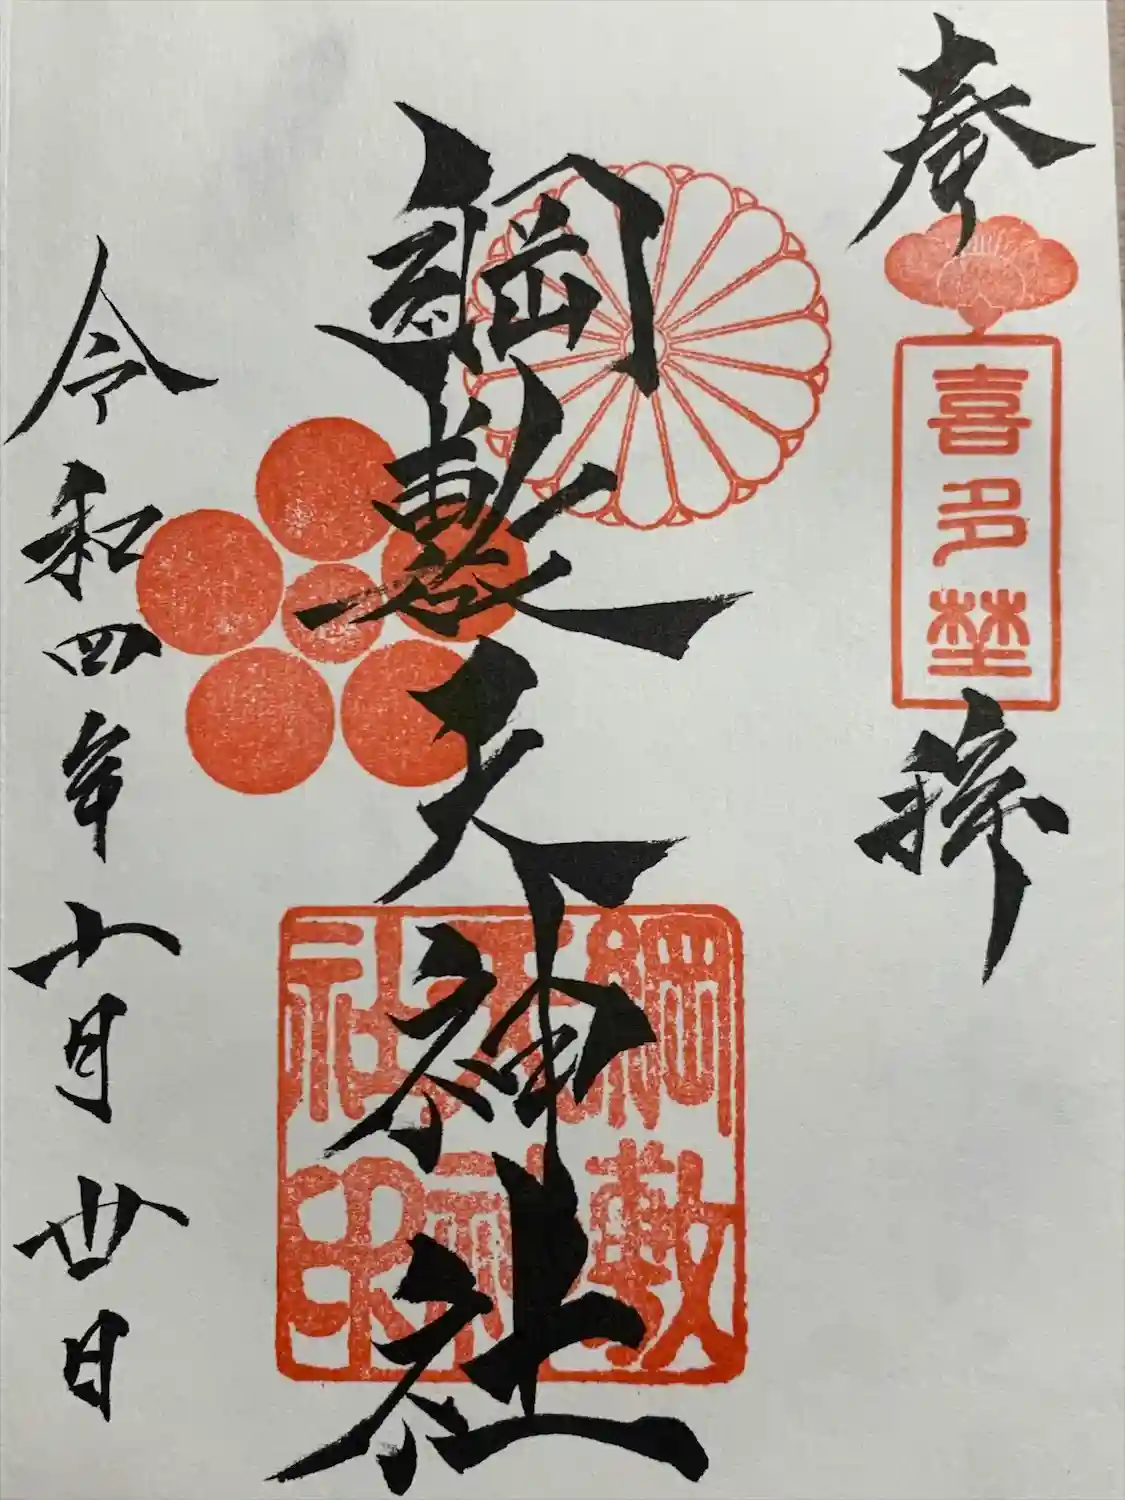 奉
喜多埜
拝
綱敷天神社
綱敷天神社印
令和四年十月廿日